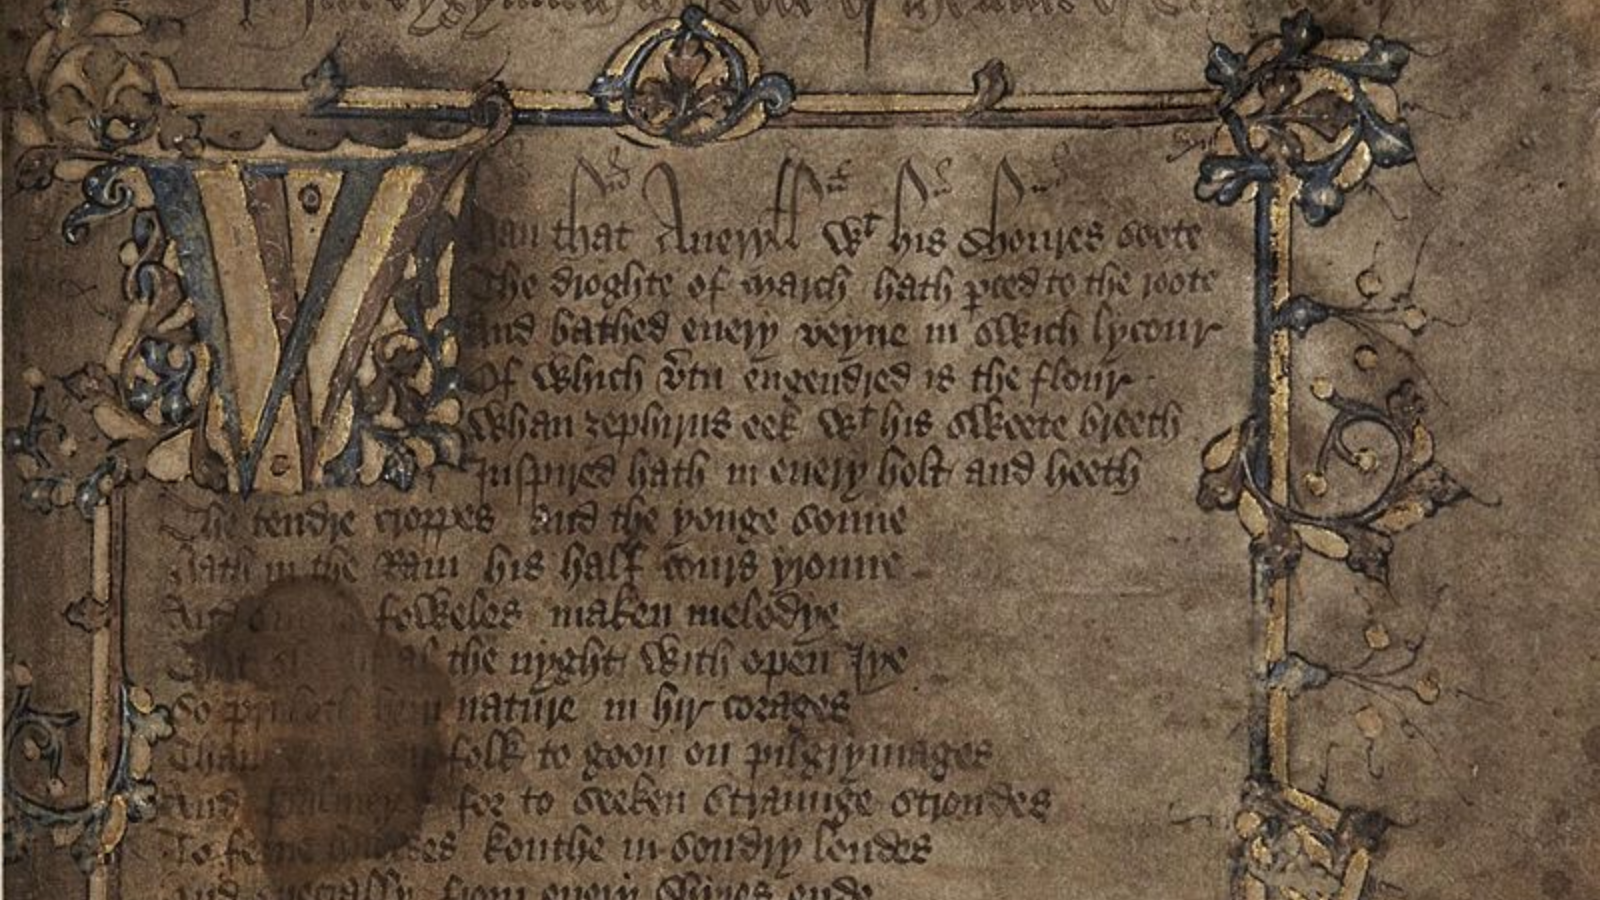 bygynneth of the tales of
Whan that Aueryll wᵗ his shoures soote
The droghte of march hath ꝑced to the roote
And bathed euery veyne in swich lycour
Of which v̄tu engendred is the flour
Whan zephirus eek wᵗ his sweete breeth
Inspired hath in euery holt and heeth
The tendre croppes and the yonge sonne
Hath in the Ram his half cours yronne
And foweles maken melodye
That al the nyght with open Iye
So priketh hem nature in hir corages
folk to goon on pilgrymages
And for to seeken straunge strondes
To ferne halwes kouthe in sondry londes
And specially from euery shires ende